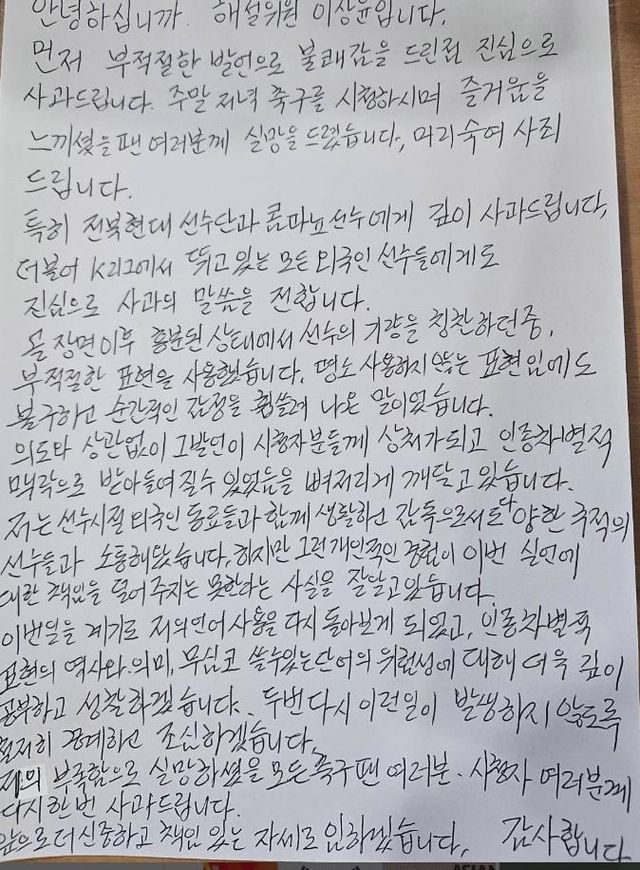 안녕하십니까. 해설위원 이상윤입니다.
먼저 부적절한 발언으로 불쾌감을 드린점 진심으로
사과드립니다. 주말 저녁 축구를 시청하시며 즐거움을
느끼셨을 팬 여러분께 실망을 드렸습니다, 머리숙여 사죄
드립니다.
특히 전북현대 선수단과 콤파뇨선수에게 깊이 사과드립니다,
더불어 K리그에서 뛰고 있는 모든 외국인 선수들에게도
진심으로 사과의 말씀을 전합니다.
골 장면이후 흥분된 상태에서 선수의 기량을 칭찬하던중,
부적절한 표현을 사용했습니다. 평소 사용하지 않는 표현임에도
불구하고 순간적인 감정을 휩쓸려 나온 말이었습니다.
의도와 상관없이 그발언이 시청자분들께 상처가되고 인종차별적
맥락으로 받아들여질수 있었음을 뼈저리게 깨닫고 있습니다.
저는 선수시절 외국인 동료들과 함께 생활하고 감독으로서도 다양한 국적의
선수들과 소통해왔습니다, 하지만 그런개인적인 경험이 이번 실언에
대한 책임을 덜어주지는 못한다는 사실을 잘알고 있습니다.
이번일을 계기로 저의언어사용을 다시 돌아보게 되었고, 인종차별적
표현의 역사와.의미, 무심코 쓸수있는단어의 위험성에 대해 더욱 깊이
공부하고 성찰하겠습니다. 두번다시 이런일이 발생하지 않도록
철저히 경계하고 조심하겠습니다.
저의 부족함으로 실망하셨을 모든축구팬 여러분. 시청자 여러분께
다시한번 사과드립니다.
앞으로 더 신중하고 책임 있는 자세로 임하겠습니다, 감사합니다